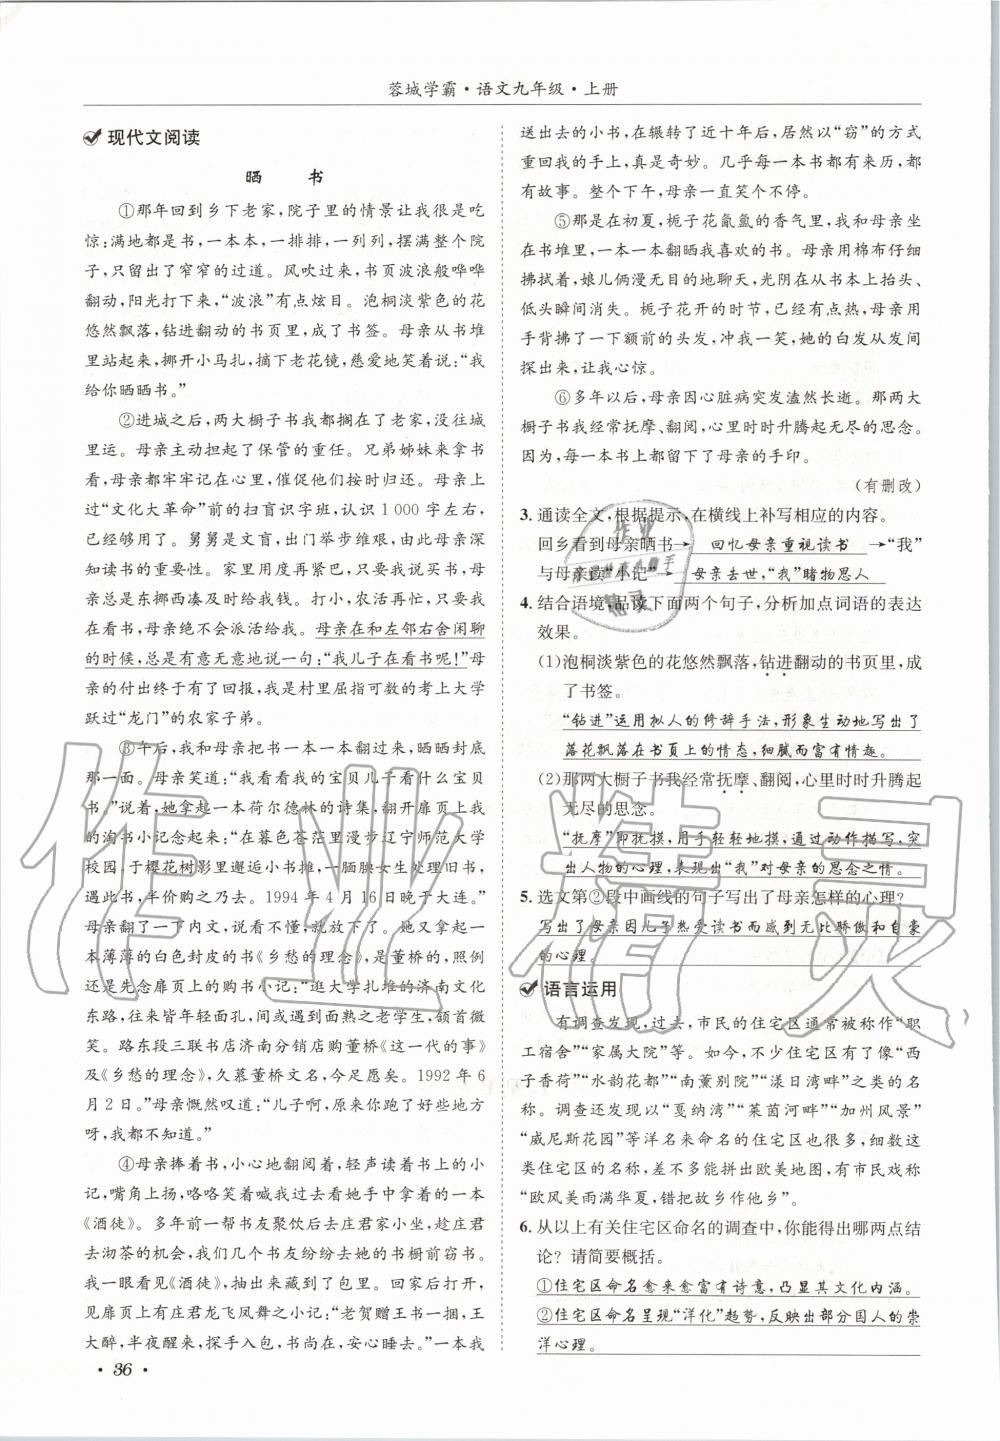 蓉城学霸·语文九年级·上册
现代文阅读
晒 书
①那年回到乡下老家，院子里的情景让我很是吃
惊：满地都是书，一本本，一排排，一列列，摆满整个院
子，只留出了窄窄的过道。风吹过来，书页波浪般哗哗
翻动，阳光打下来，“波浪”有点炫目。泡桐淡紫色的花
悠然飘落，钻进翻动的书页里，成了书签。母亲从书堆
里站起来，挪开小马扎，摘下老花镜，慈爱地笑着说：“我
给你晒晒书。”
②进城之后，两大橱子书我都搁在了老家，没往城
里运。母亲主动担起了保管的重任。兄弟姊妹来拿书
看，母亲都牢牢记在心里，催促他们按时归还。母亲上
过“文化大革命”前的扫盲识字班，认识1 000字左右，
已经够用了。舅舅是文盲，出门举步维艰，由此母亲深知
读书的重要性。家里用度再紧巴，只要我说买书，母亲
总是东挪西凑及时给我钱。打小，农活再忙，只要我在
看书，母亲绝不会派活给我。母亲在和左邻右舍闲聊
的时候，总是有意无意地说一句：“我儿子在看书呢！”母
亲的付出终于有了回报，我是村里屈指可数的考上大学
跃过“龙门”的农家子弟。
③午后，我和母亲把书一本一本翻过来，晒晒封底
那一面。母亲笑道：“我看看我的宝贝儿子看什么宝贝
书。”说着，她拿起一本荷尔德林的诗集，翻开扉页上我
的淘书小记念起来：“在暮色苍茫里漫步辽宁师范大学
校园，于樱花树影里邂逅小书摊，一腼腆女生处理旧书，
遇此书，半价购之乃去。1994年4月16日晚于大连。”
母亲翻了一下内文，说看不懂，就放下了。她又拿起一
本薄薄的白色封皮的书《乡愁的理念》，是董桥的，照例
还是先念扉页上的购书小记：“逛大学扎堆的济南文化
东路，往来皆年轻面孔，间或遇到面熟之老学生，颔首微
笑。路东段三联书店济南分销店购董桥《这一代的事》
及《乡愁的理念》，久慕董桥文名，今足愿矣。1992年6
月2日。”母亲慨然叹道：“儿子啊，原来你跑了好些地方
呀，我都不知道。”
④母亲捧着书，小心地翻阅着，轻声读着书上的小
记，嘴角上扬，咯咯笑着喊我过去看她手中拿着的一本
《酒徒》。多年前一帮书友聚饮后去庄君家小坐，趁庄君
去沏茶的机会，我们几个书友纷纷去他的书橱前窃书。
我一眼看见《酒徒》，抽出来藏到了包里。回家后打开，
见扉页上有庄君龙飞凤舞之小记：“老贺赠王书一捆，王
大醉，半夜醒来，探手入包，书尚在，安心睡去。”一本我
送出去的小书，在辗转了近十年后，居然以“窃”的方式
重回我的手上，真是奇妙。几乎每一本书都有来历，都
有故事。整个下午，母亲一直笑个不停。
⑤那是在初夏，栀子花氤氲的香气里，我和母亲坐
在书堆里，一本一本翻晒我喜欢的书。母亲用棉布仔细
拂拭着，娘儿俩漫无目的地聊天，光阴在从书本上抬头、
低头瞬间消失。栀子花开的时节，已经有点热，母亲用
手背拂了一下额前的头发，冲我一笑，她的白发从发间
探出来，让我心惊。
⑥多年以后，母亲因心脏病突发溘然长逝。那两大
橱子书我经常抚摩、翻阅，心里时时升腾起无尽的思念。
因为，每一本书上都留下了母亲的手印。
（有删改）
3. 通读全文，根据提示，在横线上补写相应的内容。
回乡看到母亲晒书→ 回忆母亲重视读书 →“我”
与母亲读“小记”→ 母亲去世，“我”睹物思人
4. 结合语境，品读下面两个句子，分析加点词语的表达
效果。
(1)泡桐淡紫色的花悠然飘落，钻进翻动的书页里，成
了书签。
“钻进”运用拟人的修辞手法，形象生动地写出了
落花飘落在书页上的情态，细腻而富有情趣。
(2)那两大橱子书我经常抚摩、翻阅，心里时时升腾起
无尽的思念。
“抚摩”即抚摸，用手轻轻地摸，通过动作描写，突
出人物的心理，表现出“我”对母亲的思念之情。
5. 选文第②段中画线的句子写出了母亲怎样的心理？
写出了母亲因儿子热爱读书而感到无比骄傲和自豪
的心理。
语言运用
有调查发现，过去，市民的住宅区通常被称作“职
工宿舍”“家属大院”等。如今，不少住宅区有了像“西
子荷苑”“水韵花都”“南薰别院”“漾日湾畔”之类的名
称。调查还发现以“戛纳湾”“莱茵河畔”“加州风景”
“威尼斯花园”等洋名来命名的住宅区也很多，细数这
类住宅区的名称，差不多能拼出欧美地图，有市民戏称
“欧风美雨满华夏，错把故乡作他乡”。
6. 从以上有关住宅区命名的调查中，你能得出哪两点结
论？请简要概括。
①住宅区命名愈来愈富有诗意，凸显其文化内涵。
②住宅区命名呈现“洋化”趋势，反映出部分国人的崇
洋心理。
·36·
作业精灵